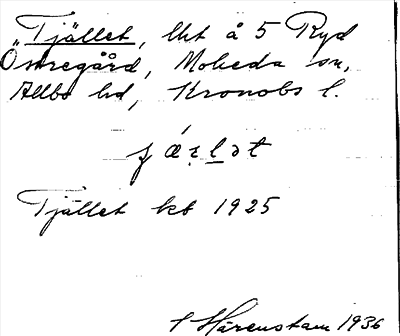 "Tjället, lht å 5 Ryd
Östregård, Moheda sn,
Allbo hd, Kronobs l.
Tjället kb 1925
Härenstam 1936